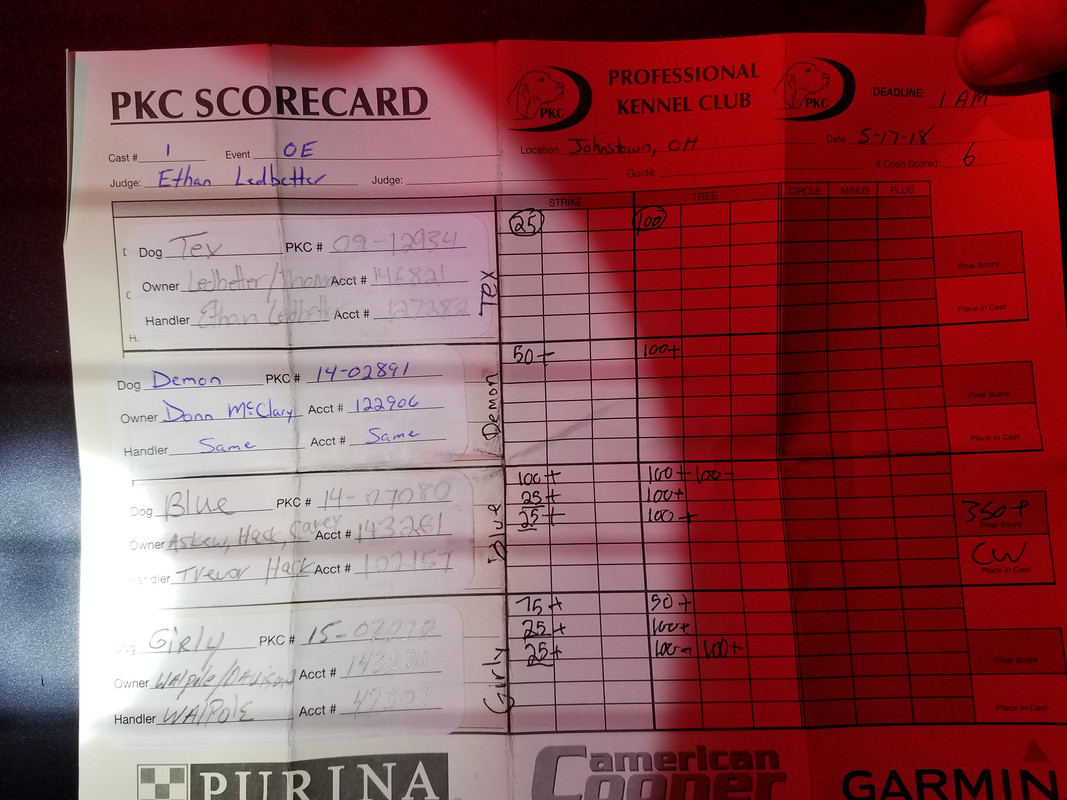 PKC SCORECARD
PKC
PROFESSIONAL
KENNEL CLUB
PKC
DEADLINE: 1 AM
Cast # 1 Event OE
Location Johnstown, OH
Date 5-17-18
Judge: Ethan Ledbetter Judge:
Guide:
# Coon Scored: 6
STRIKE TREE CIRCLE MINUS PLUS
Dog Tex PKC # 09-12934
Owner Ledbetter/ Acct # 146821
Handler Ethan Ledbetter Acct # 127282
H.
Tex
25 100
Final Score
Place in Cast
Dog Demon PKC # 14-02891
Owner Donn McClary Acct # 122906
Handler Same Acct # Same
Demon
50+ 100+
Final Score
Place in Cast
Dog Blue PKC # 14-07080
Owner Askew, Hack, Carey Acct # 143281
Handler Trevor Hack Acct # 102157
Blue
100+ 100+ 100-
25+ 100+
25+ 100+
350+
Final Score
CW
Place in Cast
Dog Girly PKC # 15-
Owner Walpole/ Acct #
Handler WAlPolE Acct #
Girly
75+ 50+
25+ 100+
25+ 100- 100+
Final Score
Place in Cast
PURINA
american
Cooner
GARMIN